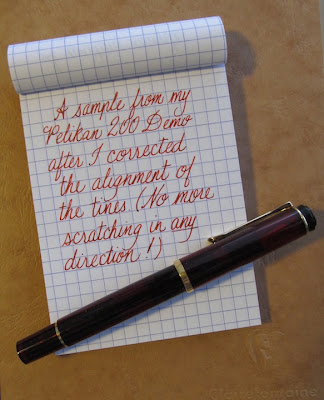 A sample from my
Pelikan 200 Demo
after I corrected
the alignment of
the tines (No more
scratching in any
direction!)